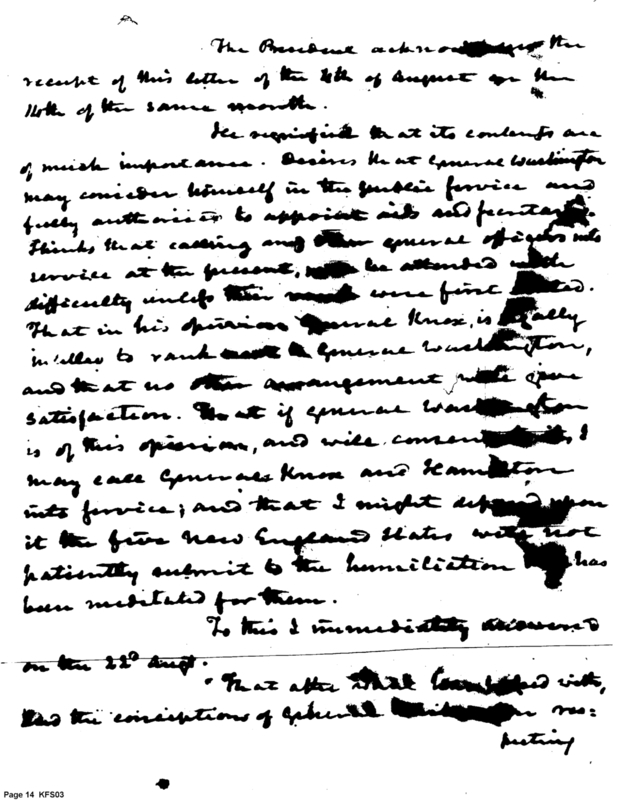 The President acknow the
receipt of this letter of the 4th of August on the
14th of the same month.
He signified that its contents are
of much importance. Desires that General Washington
may consider himself in the public service and
fully authorised to appoint aids and secretaries.
Thinks that calling any other general officers into
service at the present, be attended with
difficulty unless were first
That in his opinion General Knox, is legally
intitled to rank next to General Washington,
and that no other arrangement will give
satisfaction. That if General Washington
is of this opinion, and will consent I
may call Generals Knox and Hamilton
into service; and that I might depend upon
it the five New England States will not
patiently submit to the humiliation has
been meditated for them.
To this I immediately answered
on the 22d Augt.
"That after with,
and the conceptions of General res=
pecting
Page 14 KFS03